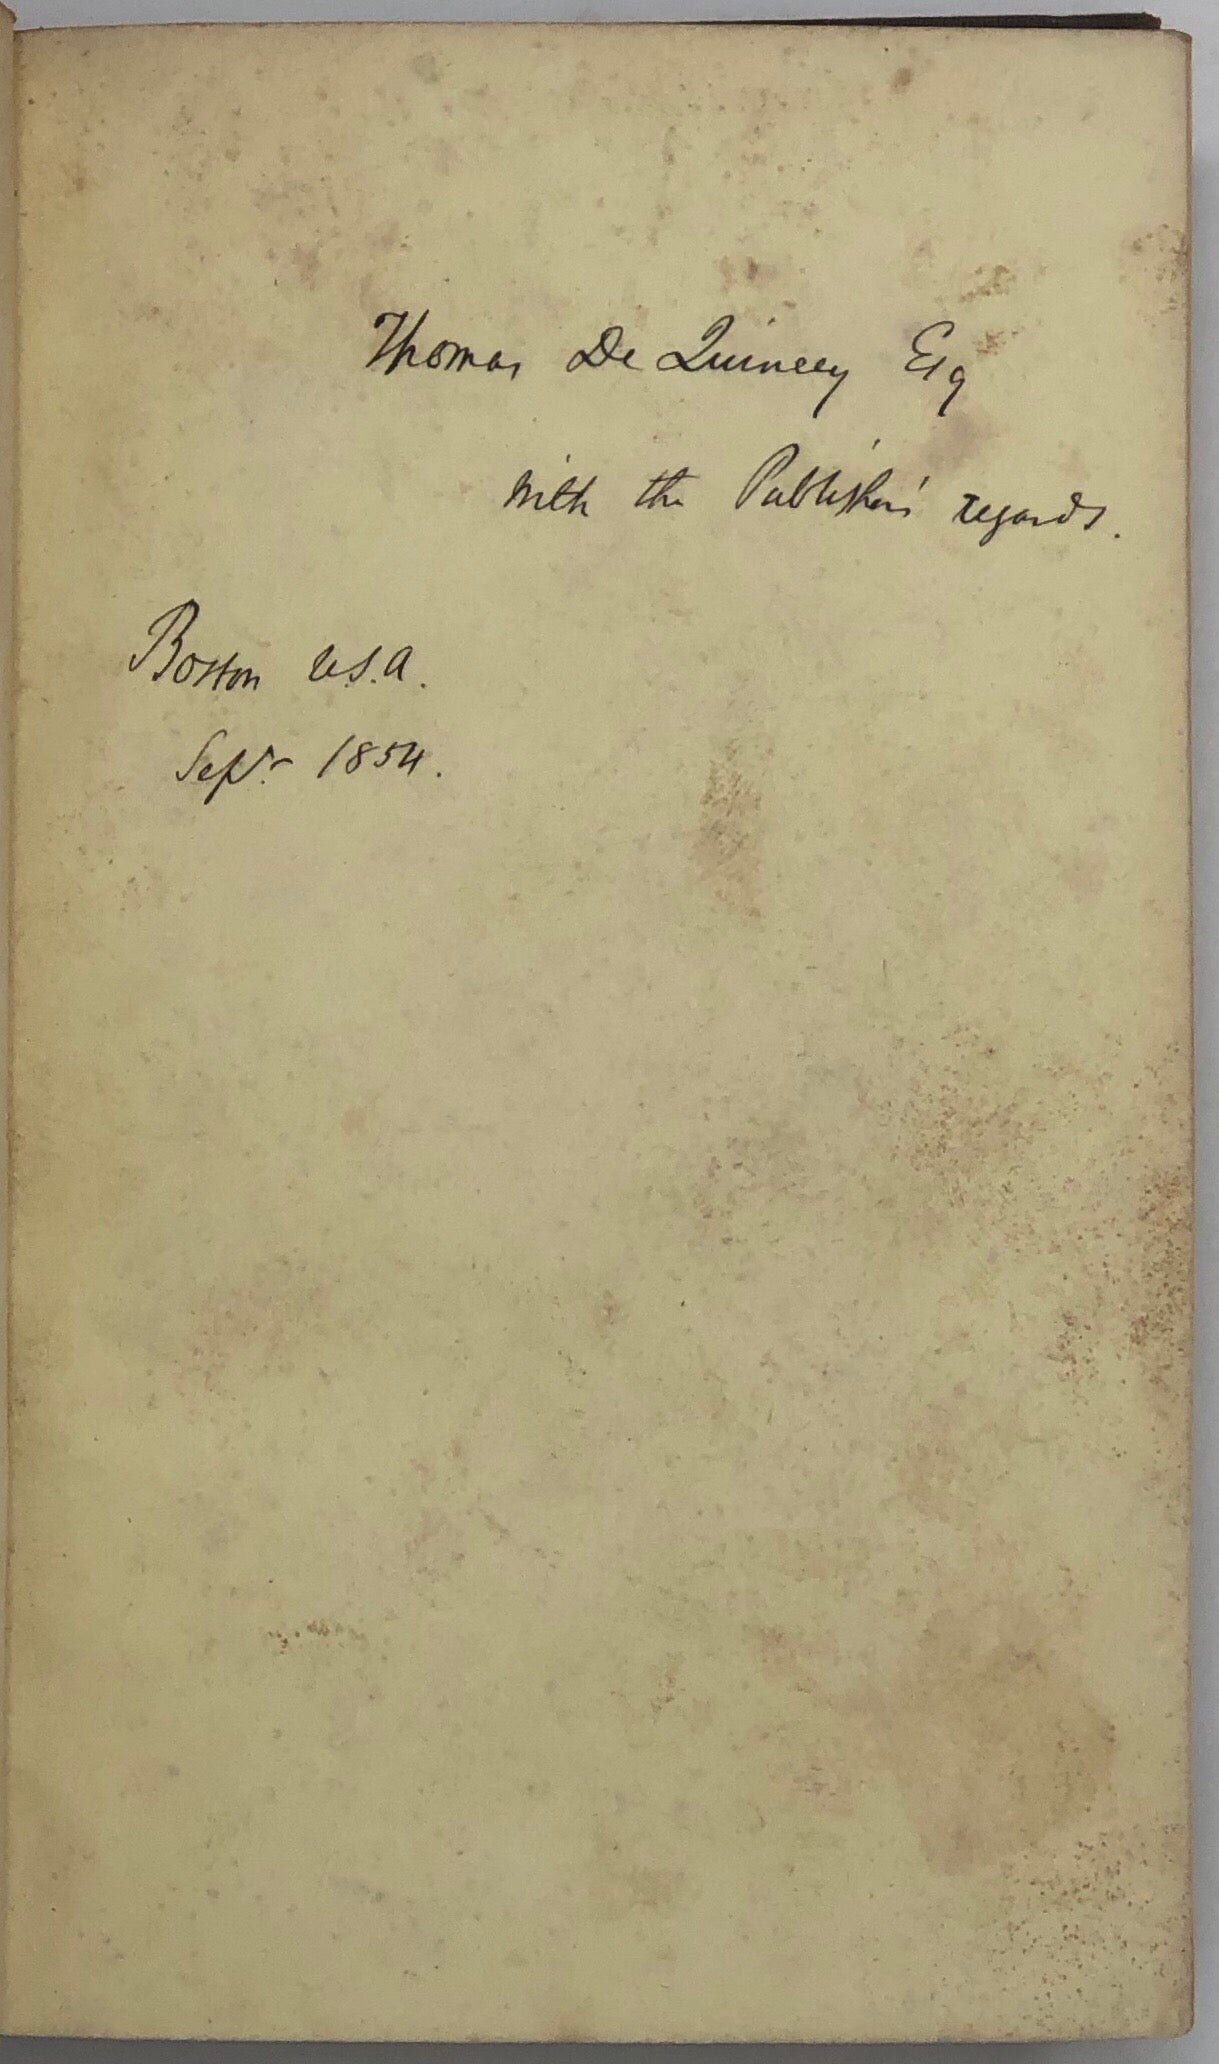 Thomas De Quincey Esq
with the Publishers' regards.
Boston U.S.A.
Sepr. 1854.